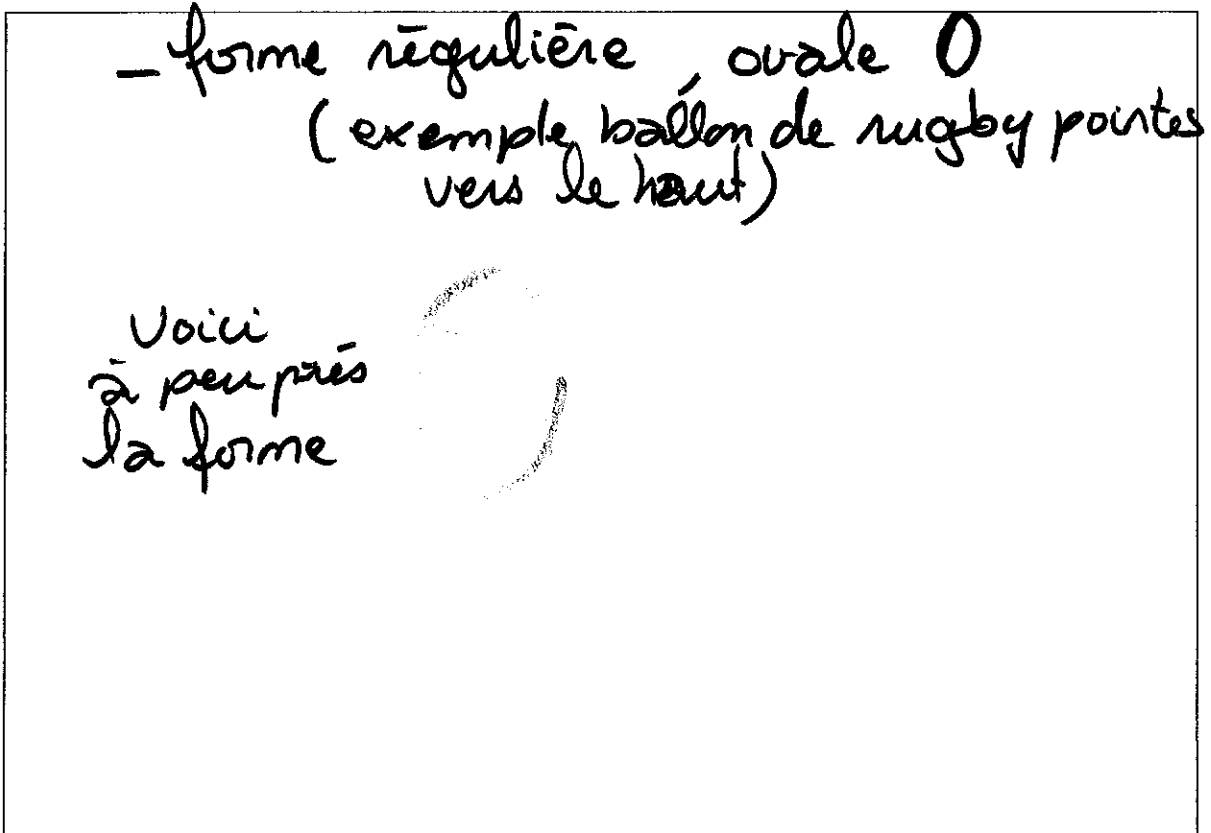 – forme régulière, ovale 0
(exemple ballon de rugby pointes
vers le haut)
Voici
à peu près
la forme